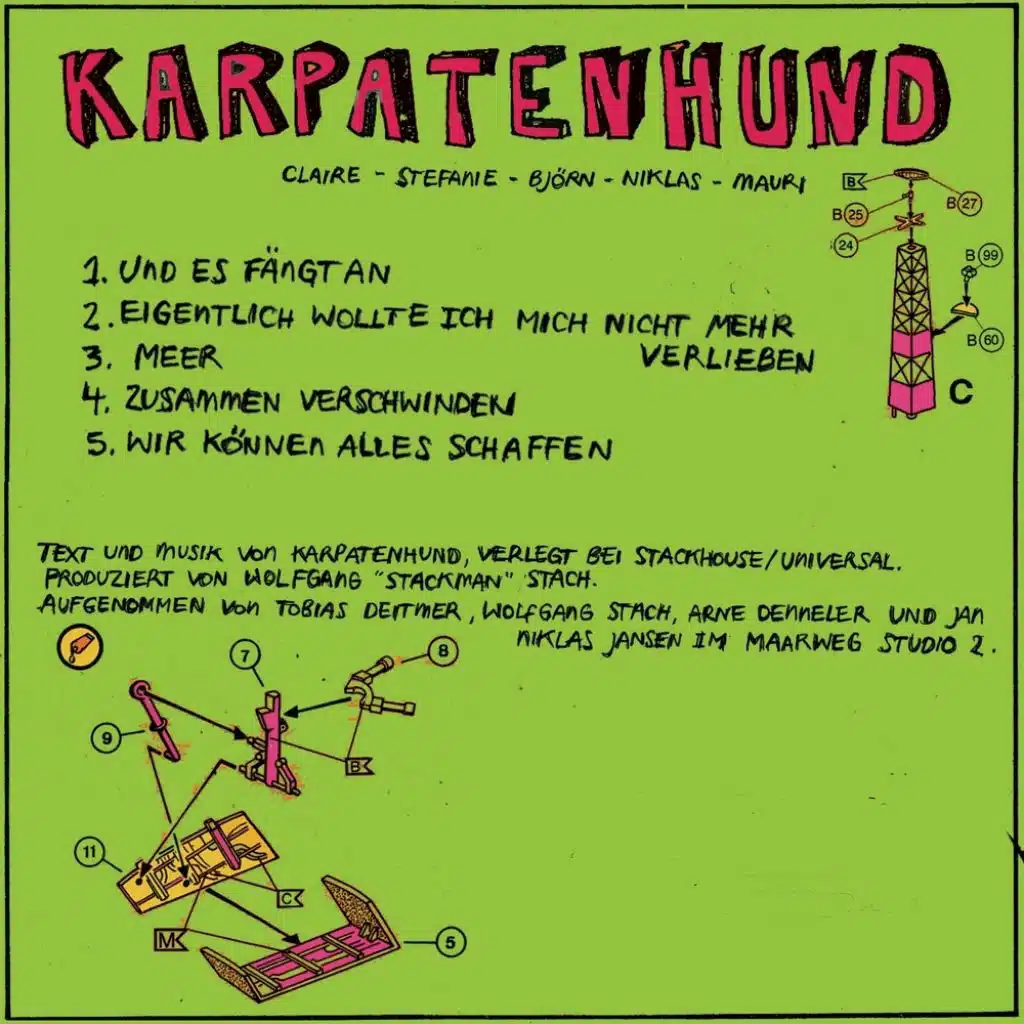 KARPATENHUND
CLAIRE - STEFANIE - BJÖRN - NIKLAS - MAURI
B
B 27
B 25
24
B 99
B 60
C
1. UND ES FÄNGT AN
2. EIGENTLICH WOLLTE ICH MICH NICHT MEHR
VERLIEBEN
3. MEER
4. ZUSAMMEN VERSCHWINDEN
5. WIR KÖNNEN ALLES SCHAFFEN
TEXT UND MUSIK VON KARPATENHUND, VERLEGT BEI STACKHOUSE/UNIVERSAL.
PRODUZIERT VON WOLFGANG "STACKMAN" STACH.
AUFGENOMMEN VON TOBIAS DEITMER, WOLFGANG STACH, ARNE DENNELER UND JAN
NIKLAS JANSEN IM MAARWEG STUDIO 2.
7
8
9
B
11
C
M
5